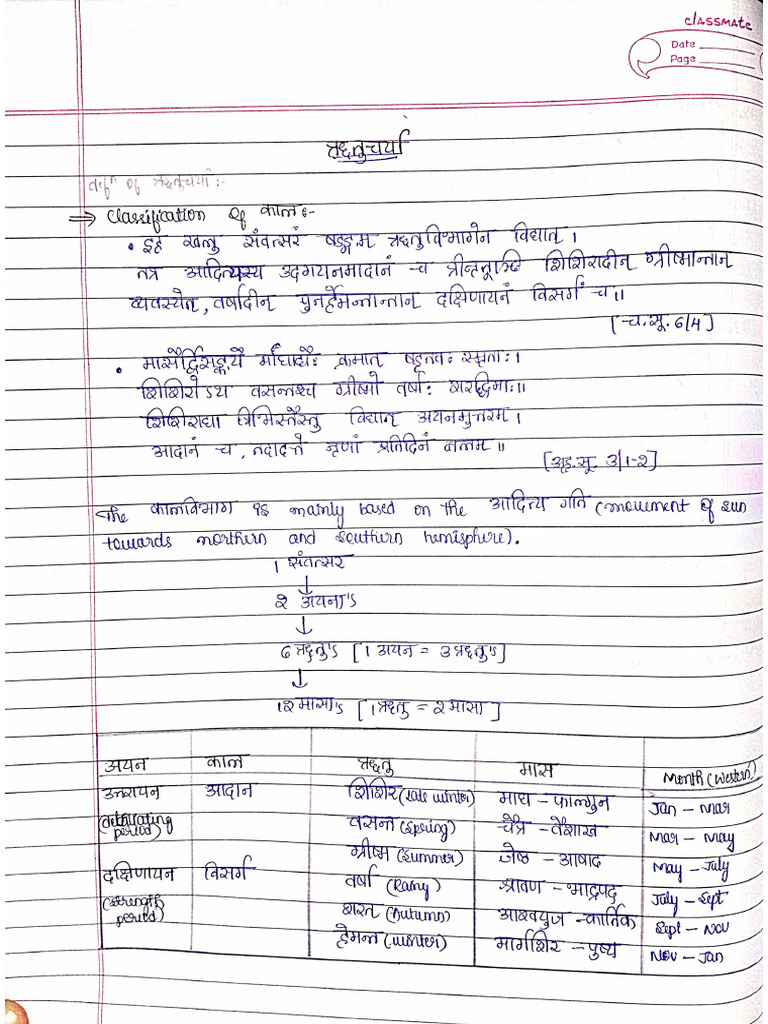 classmate
Date
Page
ऋतुचर्या
defⁿ of ऋतुचर्या :-
⇒ Classification of काल :-
• इह खलु संवत्सरं षडङ्गम ऋतुविभागेन विद्यात् ।
तत्र आदित्यस्य उदगयनमादानं च त्रीनृतूञ्छि शिशिरादीन् ग्रीष्मान्तान
व्यवस्येन, वर्षादीन् पुनर्हेमन्तान्तान् दक्षिणायनं विसर्गं च ॥
[च.सू. 6/4]
• मासैर्द्विसङ्ख्यै र्माघाद्यैः क्रमात् षडृतवः स्मृताः ।
शिशिरोऽथ वसन्तश्च ग्रीष्मो वर्षाः शरद्धिमाः ॥
शिशिराद्या स्त्रिभिस्तैस्तु विद्यात् अयनमुत्तरम् ।
आदानं च, तदादत्ते नृणां प्रतिदिनं बलम् ॥
[अ.हृ.सू. 3/1-2]
The कालविभाग is mainly based on the आदित्य गति (movement of sun
towards northern and southern hemisphere).
1 संवत्सर
↓
2 अयना's
↓
6 ऋतु's [1 अयन = 3 ऋतु's]
↓
12 मासा's [1 ऋतु = 2 मासा]
अयन काल ऋतु मास Month (Western)
उत्तरायन आदान शिशिर (late winter) माघ – फाल्गुन Jan – Mar
(debilitating period) वसन्त (Spring) चैत्र – वैशाख Mar – May
ग्रीष्म (Summer) जेष्ठ – आषाद May – July
दक्षिणायन विसर्ग वर्षा (Rainy) श्रावण – भाद्रपद July – Sept
(strength period) शरत (Autumn) आश्वयुज – कार्तिक Sept – Nov
हेमन्त (winter) मार्गाशिर – पुष्य Nov – Jan